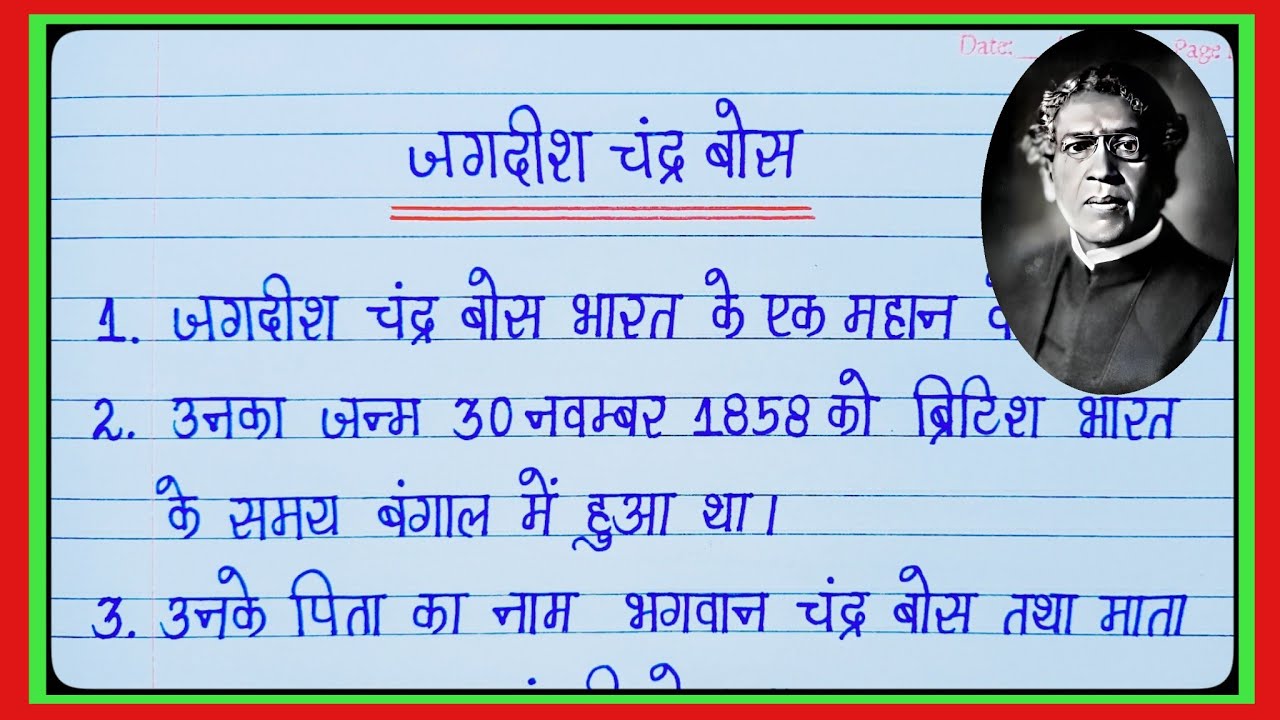 Date: Page
जगदीश चंद्र बोस
1. जगदीश चंद्र बोस भारत के एक महान
2. उनका जन्म 30 नवम्बर 1858 को ब्रिटिश भारत
के समय बंगाल में हुआ था।
3. उनके पिता का नाम भगवान चंद्र बोस तथा माता